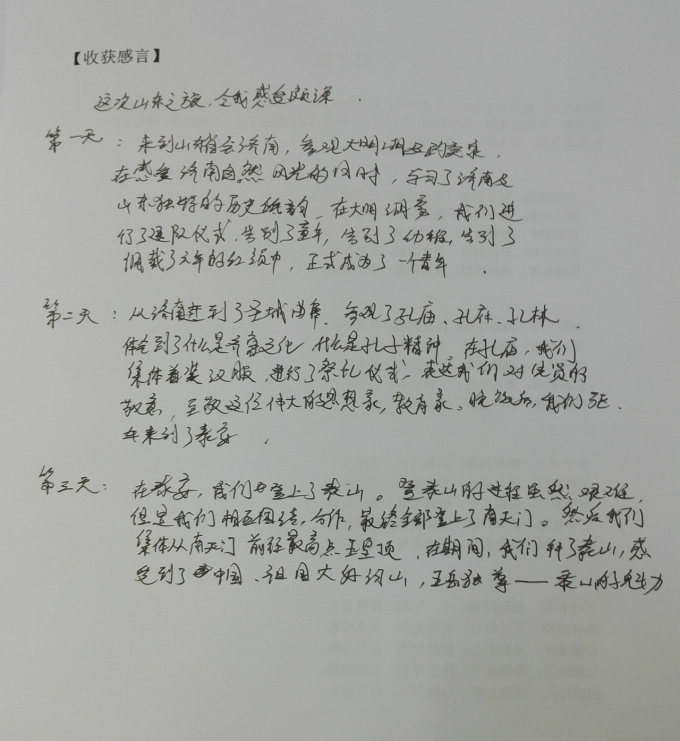 【收获感言】
这次山东之旅,令我感受颇深.
第一天:来到山东省会济南,参观大明湖
在感受济南自然风光的同时,学习了济南及
山东独特的历史底韵.在大明湖旁,我们进
行了退队仪式.告别了童年,告别了幼稚,告别了
佩戴了六年的红领巾,正式成为了一个青年.
第二天:从济南赶到了圣城曲阜.参观了孔庙、孔府、孔林.
体会到了什么是齐鲁文化 什么是孔子精神.在孔庙,我们
集体着装汉服,进行了祭孔仪式,表达我们对先贤的
敬意,至敬这位伟大的思想家,教育家。晚饭后,我们
来到了泰安.
第三天:在泰安,我们登上了泰山。登泰山的过程虽然艰难,
但是我们相互团结,合作,最终全部登上了南天门。然后我们
集体从南天门前往最高点玉皇顶.在期间,我们拜了泰山,感
受到了中国、祖国大好河山,五岳独尊——泰山的魅力